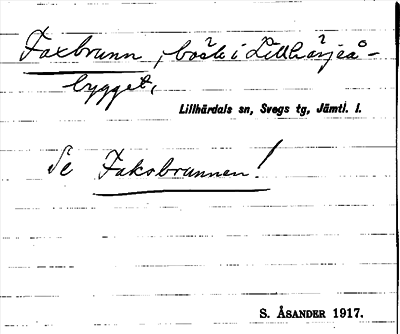 Faxbrunn, boställe i Lillhärjeå-
bygget,
Lillhärdals sn, Svegs tg, Jämtl. l.
Se Faksbrunnen!
S. ÅSANDER 1917.